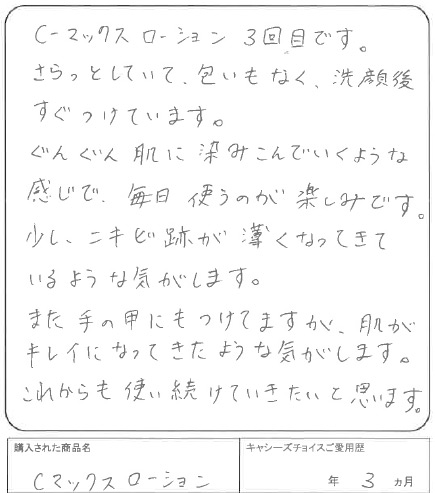 C-マックス ローション 3回目です。
さらっとしていて、匂いもなく、洗顔後
すぐつけています。
ぐんぐん肌に染みこんでいくような
感じで、毎日使うのが楽しみです。
少し、ニキビ跡が薄くなってきて
いるような気がします。
また手の甲にもつけてますが、肌が
キレイになってきたような気がします。
これからも使い続けていきたいと思います。
購入された商品名 キャシーズチョイスご愛用歴
Cマックス ローション 年 3 ヵ月